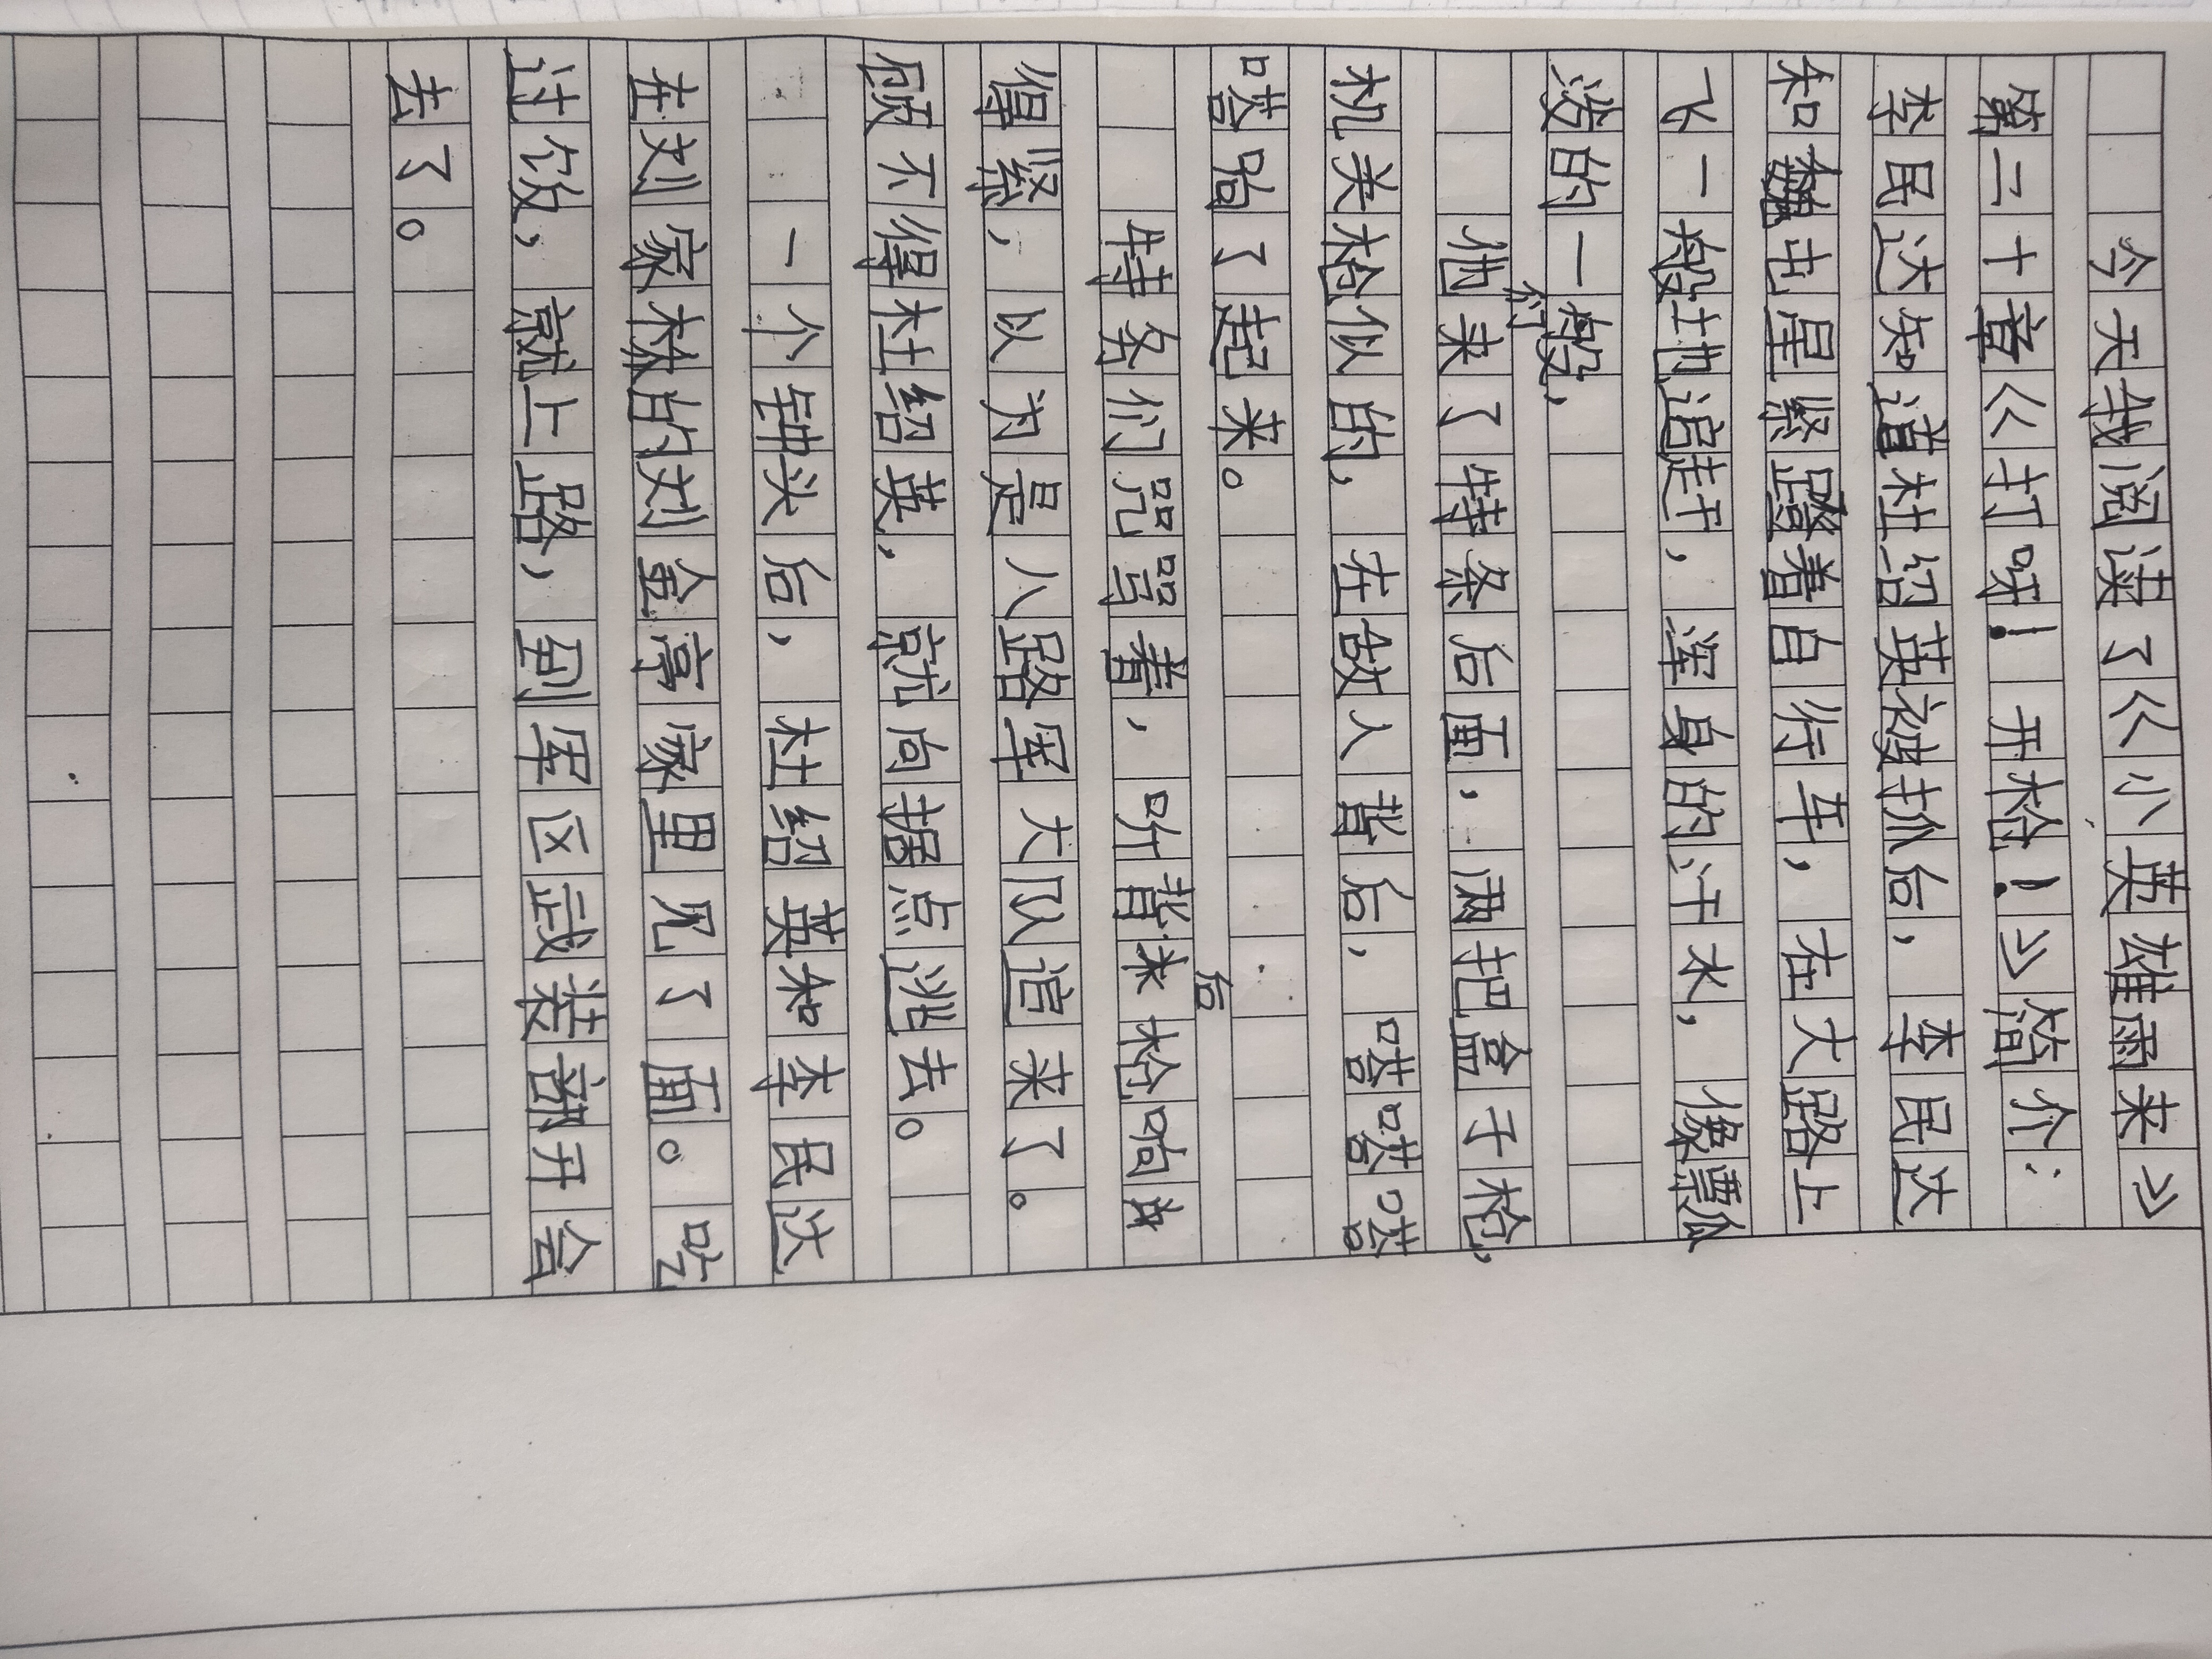 今天我阅读了《小英雄雨来》
第二十章《打呀!开枪!》简介:
李民达知道杜绍英被抓后,李民达
和屯星紧蹬着自行车,在大路上
飞一般地追赶,浑身的汗水,像瓢
泼的一般,
他们来了特条后面,两把盒子枪,
机关枪似的,在敌人背后,嗒嗒嗒
嗒响了起来。
特务们咒骂着,听背后来枪响
得紧,以为是八路军大队追来了。
顾不得杜绍英,就向据点逃去。
一个钟头后,杜绍英和李民达
在刘家林的刘金亭家里见了面。吃
过饭,就上路,到军区武装部开会
去了。